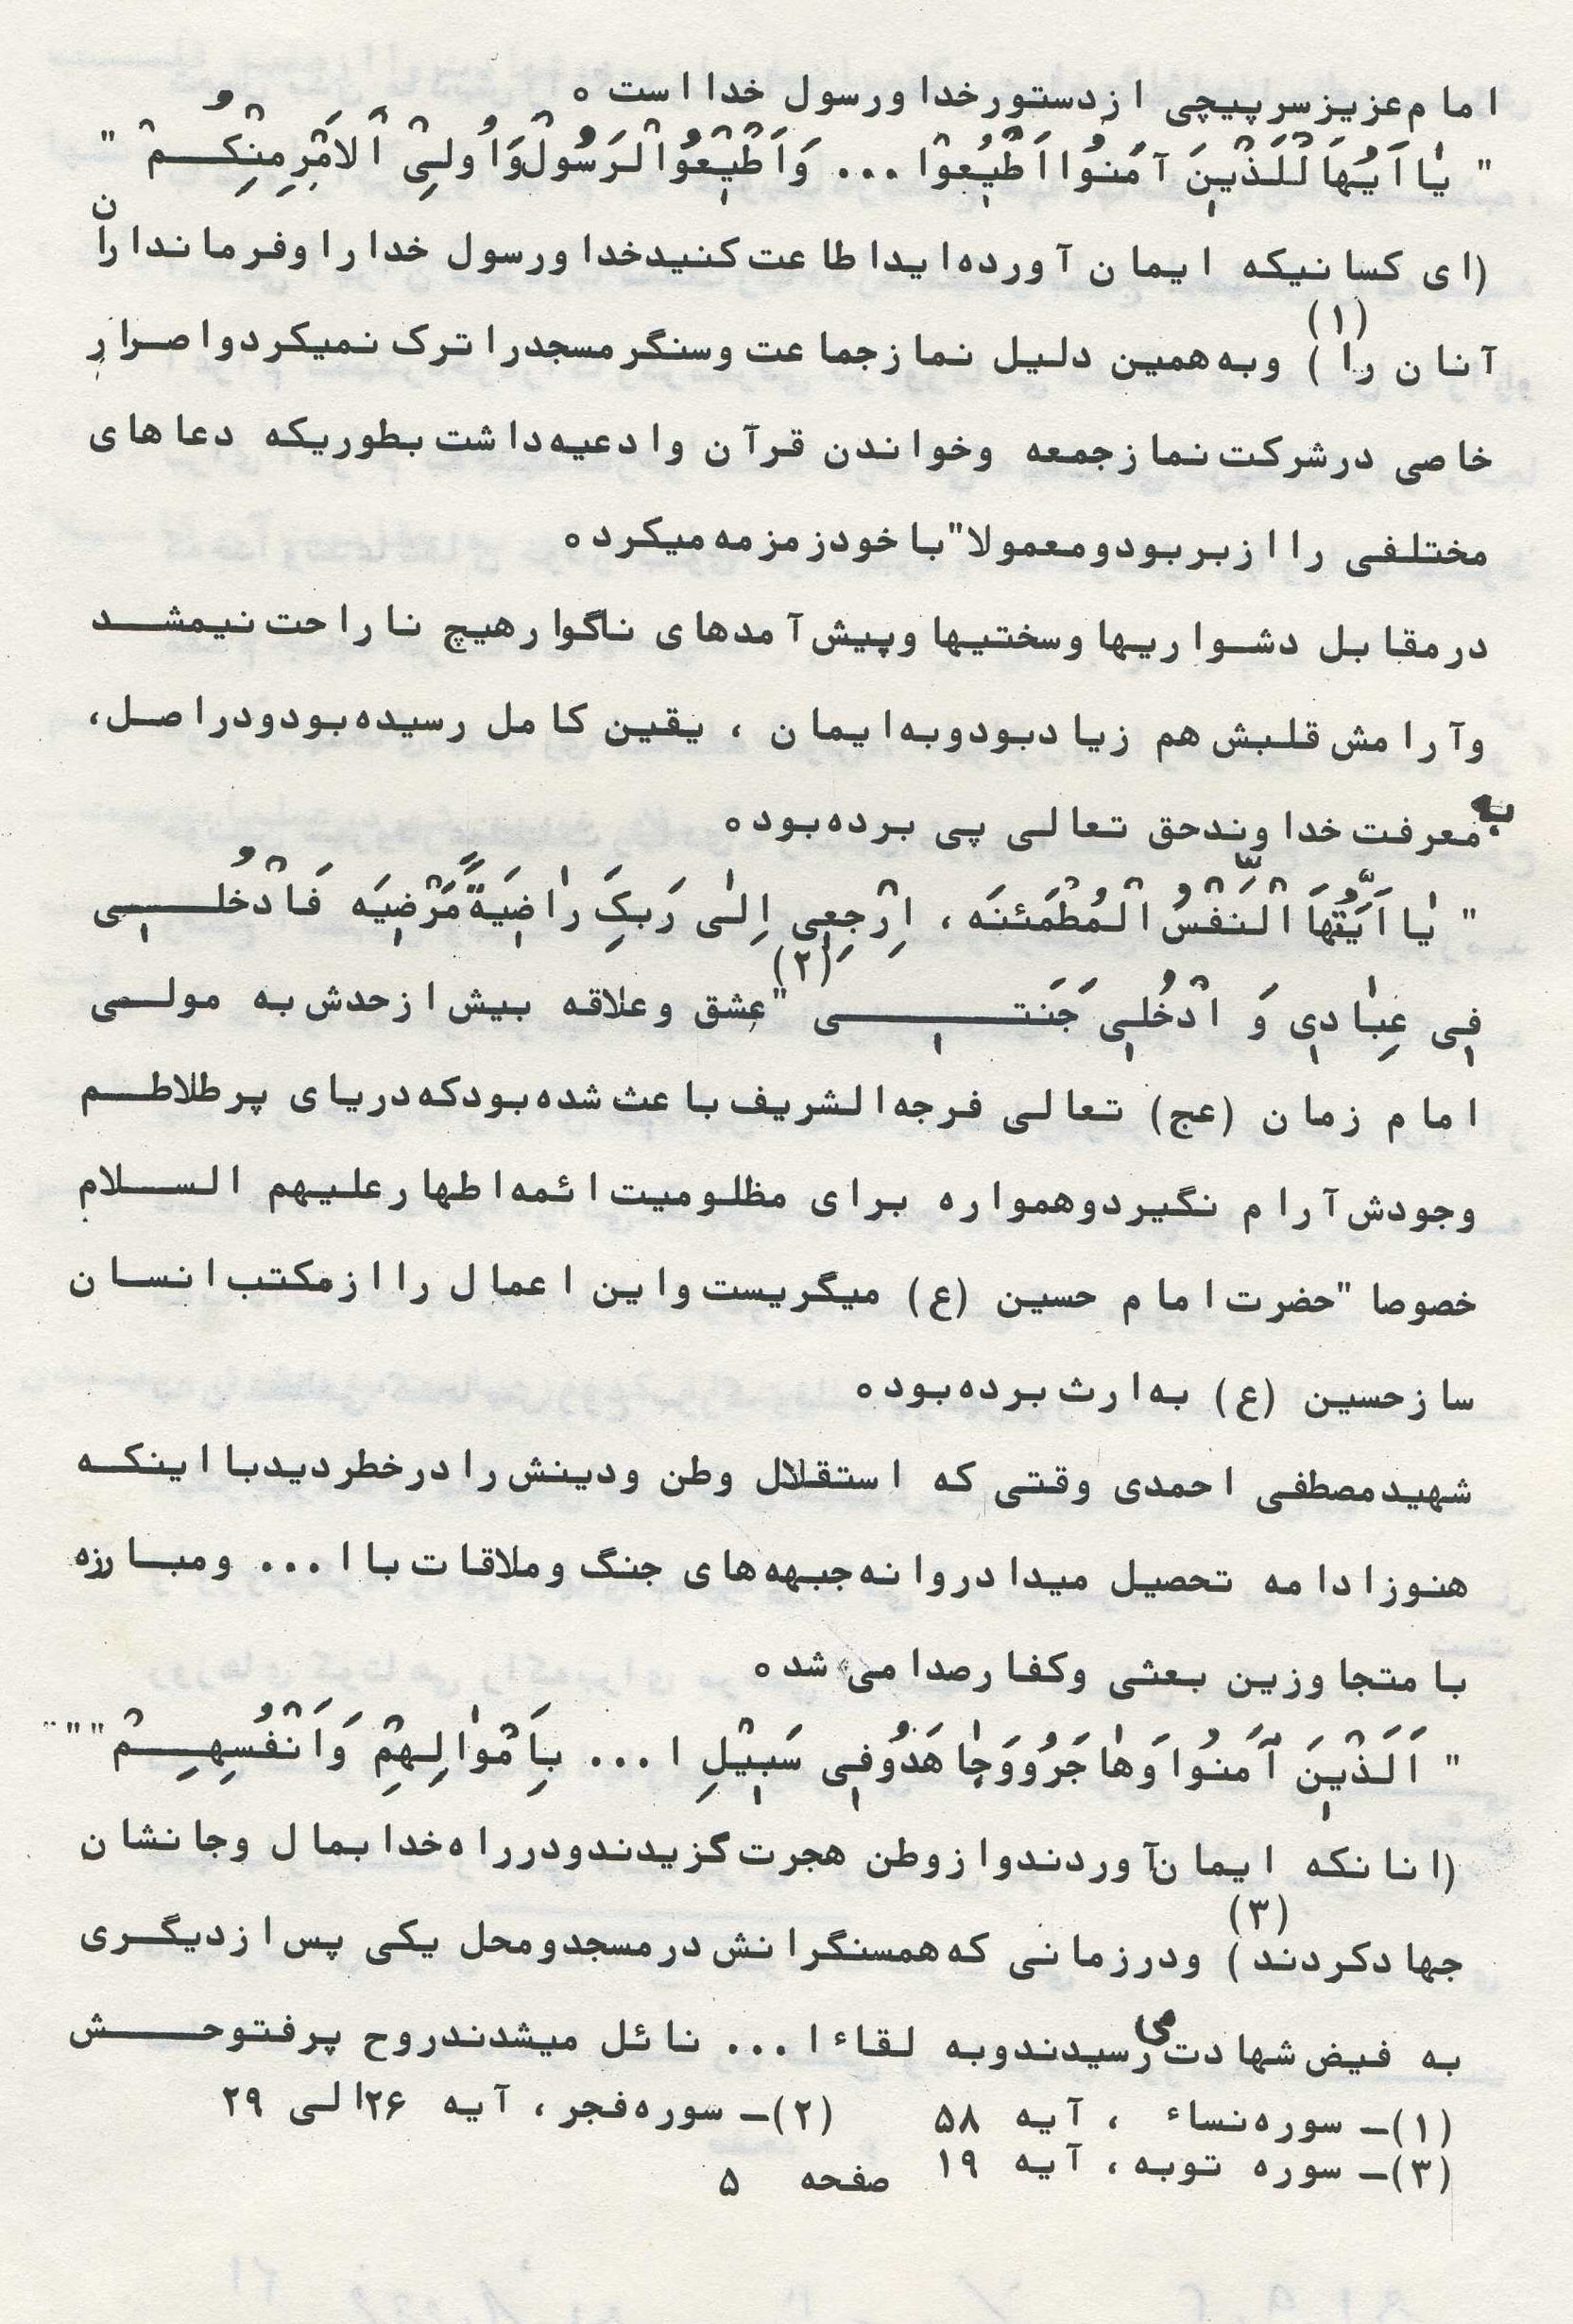 امام عزیز سرپیچی از دستور خدا و رسول خدا است ۰
" یٰا اَیُّهَا لَّلَذْینَ آمَنُوْا اَطْیعُوْا ... وَ اَطْیعُوْا الرَسُوْلْ وَ اُولیْ الاَمْرِ مِنْکُمْ "
(ای کسانیکه ایمان آورده اید اطاعت کنید خدا و رسول خدا را و فرمانداران
آنان را ) (۱) و به همین دلیل نماز جماعت و سنگر مسجد را ترک نمیکرد و اصرار
خاصی در شرکت نماز جمعه و خواندن قرآن و ادعیه داشت بطوریکه دعاهای
مختلفی را از بر بود و معمولا" با خود زمزمه میکرد ۰
در مقابل دشواریها و سختیها و پیش آمدهای ناگوار هیچ ناراحت نیمشد
و آرامش قلبش هم زیاد بود و به ایمان ، یقین کامل رسیده بود و در اصل،
به معرفت خداوند حق تعالی پی برده بود ۰
" یٰا اَیَّتُهَا الْنَّفْسُ الْمُطْمَئنَه ، اِرْجِعِی اِلیٰ رَبِکَ رٰاضِیَةً مَرْضِیَه فَادْخُلِی
فِی عِبٰادِی وَ ادْخُلِی جَنَتِی " (۲) عشق و علاقه بیش از حدش به مولی
امام زمان (عج) تعالی فرجه الشریف باعث شده بود که دریای پر طلاطم
وجودش آرام نگیرد و همواره برای مظلومیت ائمه اطهار علیهم السلام
خصوصا " حضرت امام حسین (ع) میگریست و این اعمال را از مکتب انسان
ساز حسین (ع) به ارث برده بود ۰
شهید مصطفی احمدی وقتی که استقلال وطن و دینش را در خطر دید با اینکه
هنوز ادامه تحصیل میداد روانه جبهه های جنگ و ملاقات با ا ... و مبارزه
با متجاوزین بعثی و کفار صدامی شد ۰
" اَلَذْینَ آمَنُوا وَهٰاجَرُو وَ جٰاهَدُو فِی سَبیْلِ ا ... بِاَمْوٰالِهِمْ وَ اَنْفُسِهِمْ ""
(انانکه ایمان آوردند و از وطن هجرت گزیدند و در راه خدا بمال و جانشان
جهاد کردند ) (۳) و در زمانی که همسنگرانش در مسجد و محل یکی پس از دیگری
به فیض شهادت می رسیدند و به لقاء ا ... نائل میشدند روح پر فتوحش
(۱)- سوره نساء ، آیه ۵۸ (۲)- سوره فجر ، آیه ۲۶ الی ۲۹
(۳)- سوره توبه ، آیه ۱۹
صفحه ۵